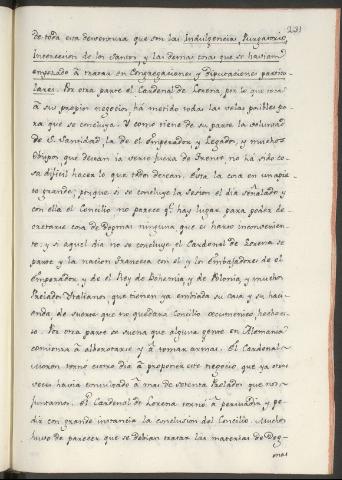 231
de toda esta desventura que son las Indulgencias, Purgatorio,
Intercesion de los Santos, y las demas cosas que se havian
empezado à tratar en Congregaciones y diputaciones particu-
lares. Por otra parte el Cardenal de Lorena, por lo que toca
à sus propios negocios, hà metido todas las velas posibles pa-
ra que se concluya. Y como tiene de su parte la voluntad
de S. Santidad, la de el Emperador y Legados, y muchos
obispos que desean ia verse fuera de Trento, no há sido co-
sa dificil hacer lo que todos desean. Està la cosa en un apie-
to grande; porque si se concluye la sesion el dia señalado y
con ella el Concilio no parece q.e hay lugar para poder de-
cretarse cosa de Dogmas ninguna que es harto inconvenien-
te: y si aquel dia no se concluye, el Cardenal de Lorena se
parte y la nacion francesa con el y los Embajadores de el
Emperador y de el Rey de Bohemia, y de Polonia, y muchos
Prelados Italianos, que tienen ya embiada su casa y su haci-
enda, de suerte que no quedara Concilio oecumenico, hecho es-
to. Por otra parte se suena que alguna gente en Alemania
comienza à alborotarse y à tomar armas. El Cardenal
Moron tornò estro dia à proponer este negocio, que ya otra
vez havia comunicado à mas de setenta Prelados que nos
juntamos. El Cardenal de Lorena tornò à persuadir y pe-
dir con grande instancia la conclusion del Concilio. Muchos
huvo de parecer que se debian tratar las materias de Dog-
mas